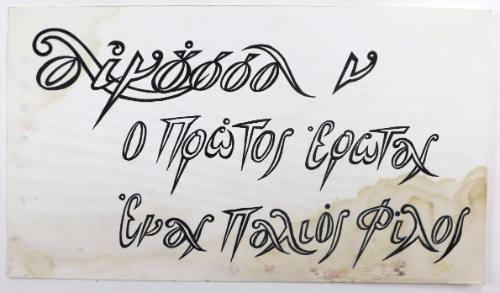 Ο Πρώτος Έρωτας
Ένας Παλιός Φίλος